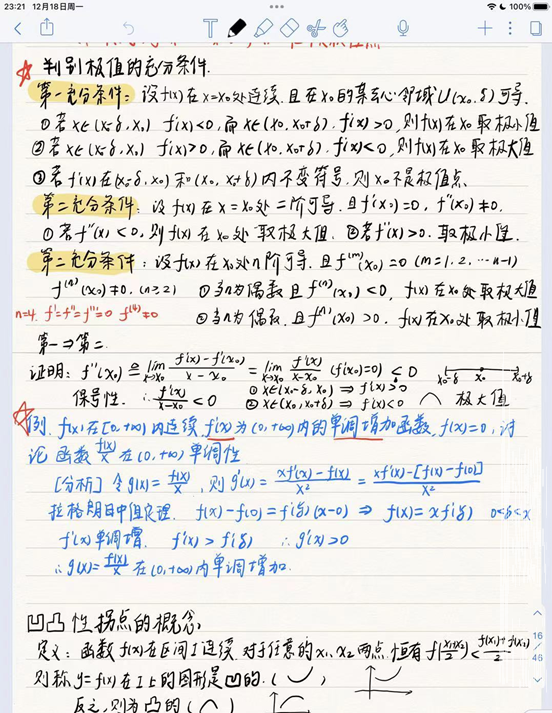 23:21 12月18日周一
100%
判别极值的充分条件.
第一充分条件: 设f(x)在x=x₀处连续,且在x₀的某去心邻域Ů(x₀,δ)可导.
①若x∈(x₀-δ, x₀) f'(x)<0,而x∈(x₀, x₀+δ). f'(x)>0,则f(x)在x₀取极小值
②若x∈(x₀-δ, x₀) f'(x)>0,而x∈(x₀, x₀+δ). f'(x)<0,则f(x)在x₀取极大值
③若f'(x)在(x₀-δ, x₀)和(x₀, x₀+δ)内不变符号,则x₀不是极值点.
第二充分条件: 设f(x)在x=x₀处二阶可导,且f'(x₀)=0, f''(x₀)≠0.
①若f''(x₀)<0,则f(x)在x₀处取极大值. ②若f''(x)>0.取极小值.
第二充分条件: 设f(x)在x₀处n阶可导.且f⁽ᵐ⁾(x₀)=0 (m=1,2,…n-1)
f⁽ⁿ⁾(x₀)≠0, (n≥2) ①当n为偶数且f⁽ⁿ⁾(x₀)<0, f(x)在x₀处取极大值
n=4. f'=f''=f'''=0 f⁽⁴⁾≠0 ②当n为偶数.且f⁽ⁿ⁾(x₀)>0. f(x)在x₀处取极小值
第一⇒第二
证明: f''(x₀) ≜ lim x→x₀ (f'(x)-f'(x₀))/(x-x₀) = lim x→x₀ f'(x)/(x-x₀) (f'(x₀)=0) <0 x₀-δ x₀ x₀+δ
保号性. ∴ f'(x)/(x-x₀) <0 ①x∈(x₀-δ, x₀) ⇒ f'(x)>0
②x∈(x₀, x₀+δ) ⇒ f'(x)<0 极大值
例. f(x)在[0,+∞)内连续,f'(x)为(0,+∞)内的单调增加函数,f(0)=0,讨
论函数 f(x)/x 在(0,+∞)单调性
[分析] 令g(x)= f(x)/x, 则g'(x)= (xf'(x)-f(x))/x² = (xf'(x)-[f(x)-f(0)])/x²
拉格朗日中值定理. f(x)-f(0)=f'(ξ)(x-0) ⇒ f(x)=xf'(ξ) 0<ξ<x
f'(x)单调增. f'(x)>f'(ξ) ∴g'(x)>0
∴g(x)= f(x)/x 在(0,+∞)内单调增加.
凹凸性拐点的概念:
定义: 函数f(x)在区间I连续.对于任意的x₁、x₂两点,恒有f((x₁+x₂)/2)<(f(x₁)+f(x₂))/2
则称y=f(x)在I上的图形是凹的.( )
反之,则为凸的( )
16
46